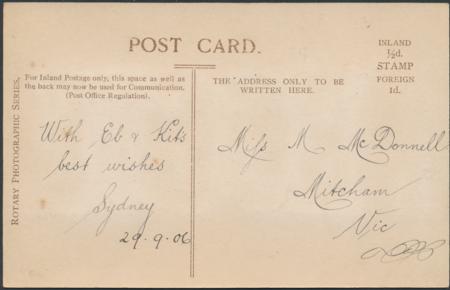 POST CARD.
INLAND
½d.
STAMP
FOREIGN
1d.
ROTARY PHOTOGRAPHIC SERIES.
For Inland Postage only, this space as well as
the back may now be used for Communication.
(Post Office Regulation).
THE ADDRESS ONLY TO BE
WRITTEN HERE.
With Eb & Kit's
best wishes
Sydney
29.9.06
Miss M McDonnell
Mitcham
Vic